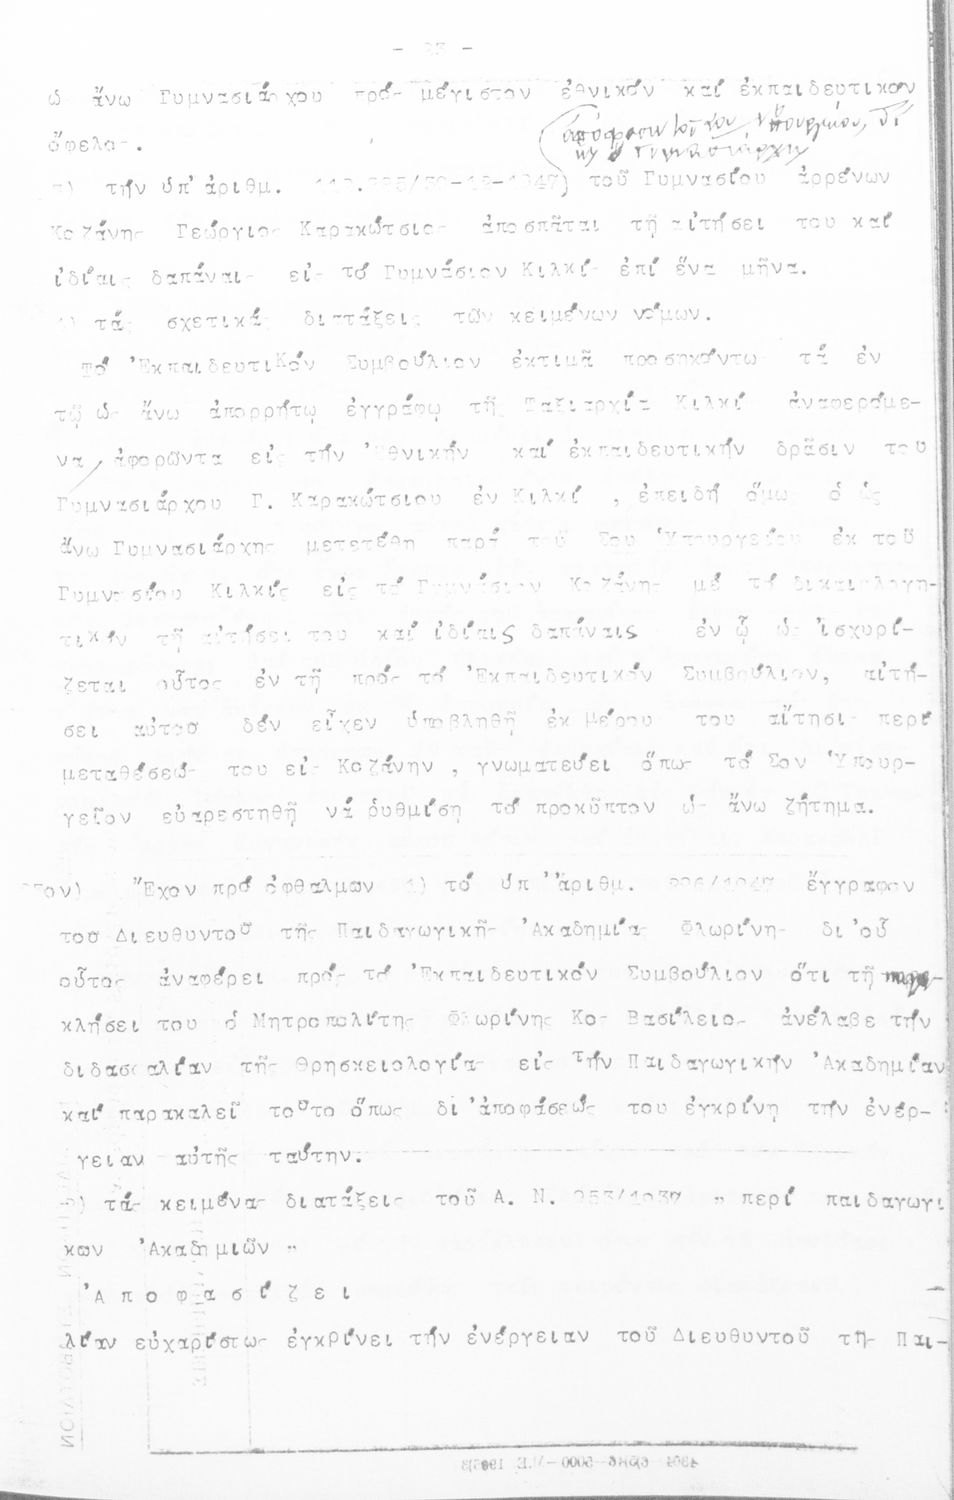 - 23 -
ὡς ἄνω Γυμνασιάρχου πρός μέγιστον ἐθνικόν καί ἐκπαιδευτικον
ὄφελος.
ἀπόφασιν τοῦ του Ὑπουργείου, δι'
ἧς ὁ Γυμνασιάρχης
τήν ὑπ'ἀριθμ. 119.285/30-12-1947) τοῦ Γυμνασίου ἀρρένων
Κοζάνης Γεώργιος Καρακώτσιος ἀποσπᾶται τῇ αἰτήσει του καί
ἰδίαις δαπάναις εἰς τό Γυμνάσιον Κιλκίς ἐπί ἕνα μῆνα.
τάς σχετικάς διατάξεις τῶν κειμένων νόμων.
Τό Ἐκπαιδευτικόν Συμβούλιον ἐκτιμᾶ προσηκόντως τά ἐν
τῷ ὡς ἄνω ἀπορρήτῳ ἐγγράφῳ τῆς Ταξιαρχίας Κιλκίς ἀναφερόμε-
να, ἀφορῶντα εἰς τήν Ἐθνικήν καί ἐκπαιδευτικήν δρᾶσιν του
Γυμνασιάρχου Γ. Καρακώτσιου ἐν Κιλκίς , ἐπειδή ὅμως ὁ ὡς
ἄνω Γυμνασιάρχης μετετέθη παρά τοῦ Σου Ὑπουργείου ἐκ τοῦ
Γυμνασίου Κιλκίς εἰς τό Γυμνάσιον Κοζάνης μέ τό δικαιολογη-
τικόν τῇ αἰτήσει του καί ἰδίαις δαπάναις ἐν ᾧ ὡς ἰσχυρί-
ζεται οὗτος ἐν τῇ πρός τό Ἐκπαιδευτικόν Συμβούλιον, αἰτή-
σει αὐτοῦ δέν εἶχεν ὑποβληθῆ ἐκ μέρους του αἴτησις περί
μεταθέσεώς του εἰς Κοζάνην , γνωματεύει ὅπως τό Σον Ὑπουρ-
γεῖον εὐαρεστηθῆ νά ρυθμίσῃ τό προκῦπτον ὡς ἄνω ζήτημα.
Ἔχον πρό ὀφθαλμων 1) τό ὑπ'ἀριθμ. 226/1947 ἔγγραφον
τοῦ Διευθυντοῦ τῆς Παιδαγωγικῆς Ἀκαδημίας Φλωρίνης δι'οὗ
οὗτος ἀναφέρει πρός τό Ἐκπαιδευτικόν Συμβούλιον ὅτι τῇ παρα-
κλήσει του ὁ Μητροπολίτης Φλωρίνης Κος Βασίλειος ἀνέλαβε τήν
διδασκαλίαν τῆς Θρησκειολογίας εἰς τήν Παιδαγωγικήν Ἀκαδημίαν
καί παρακαλεῖ τοῦτο ὅπως δι'ἀποφάσεώς του ἐγκρίνῃ τήν ἐνέρ-
γειαν αὐτῆς ταύτην.
2) τάς κειμένας διατάξεις τοῦ Α. Ν. 953/1937 " περί παιδαγωγι
κων Ἀκαδημιῶν "
Ἀ π ο φ α σ ί ζ ε ι
λίαν εὐχαρίστως ἐγκρίνει τήν ἐνέργειαν τοῦ Διευθυντοῦ τῆς Παι-